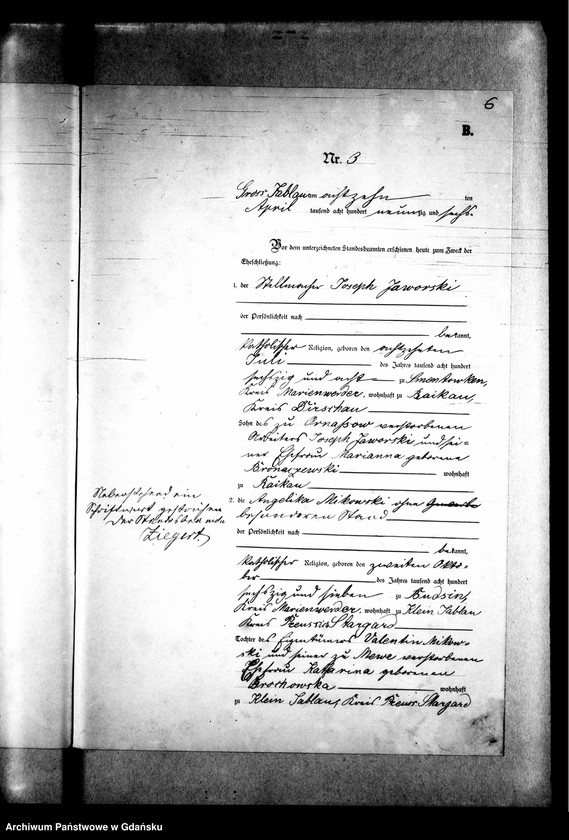 6
B.
Nr. 3
Gross Jablau am achtzehn ten
April tausend acht hundert neunzig und sechs.
Vor dem unterzeichneten Standesbeamten erschienen heute zum Zweck der
Eheschließung:
1. der Stellmacher Joseph Jaworski
der Persönlichkeit nach
bekannt,
katholischer Religion, geboren den achtzehnten
Juli des Jahres tausend acht hundert
sechszig und acht zu Smentowken,
Kreis Marienwerder, wohnhaft zu Raikau,
Kreis Dirschau
Sohn des zu Ornassow verstorbenen
Arbeiters Joseph Jaworski und sei-
ner Ehefrau Marianna geborene
wohnhaft
zu Raikau
2. die Angelika Mikowski ohne Gewerbe
besonderen Stand
der Persönlichkeit nach
bekannt,
katholischer Religion, geboren den zweiten Okto-
ber des Jahres tausend acht hundert
sechszig und sieben zu
Kreis Marienwerder, wohnhaft zu Klein Jablau
Kreis Preuss. Stargard
Tochter des Eigentümers Valentin Mikow-
ski und seiner zu Mewe verstorbenen
Ehefrau Katharina geborenen
Grochowska wohnhaft
zu Klein Jablau, Kreis Preuss. Stargard
Nebenstehend ein
Schriftwort gestrichen
Der Standesbeamte
Ziegert.
Archiwum Państwowe w Gdańsku